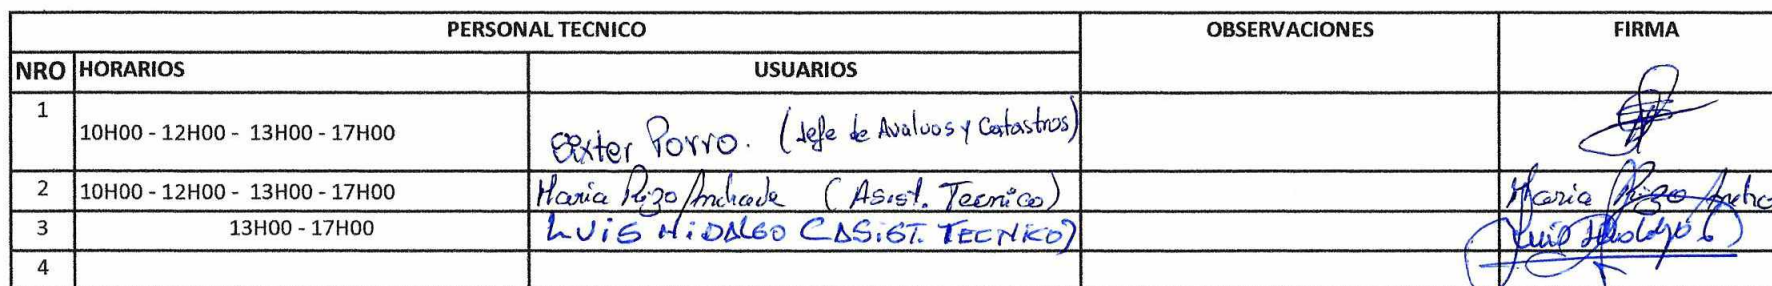 PERSONAL TECNICO OBSERVACIONES FIRMA
NRO HORARIOS USUARIOS
1 10H00 - 12H00 - 13H00 - 17H00 Porro. (Jefe de Avaluos y Catastros)
2 10H00 - 12H00 - 13H00 - 17H00 Maria Rizo Andrade (Asist. Tecnico) Maria Rizo
3 13H00 - 17H00 LUIS HIDALGO (ASIST. TECNICO) Luis Hidalgo
4